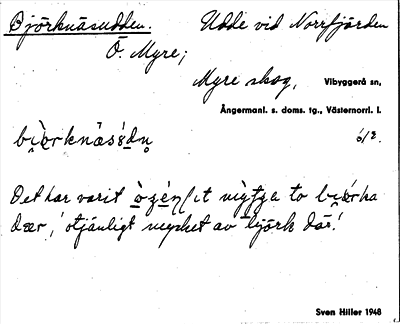 Björknäsudden. Udde vid Norrfjärden
Ö. Myre;
Myre skog, Vibyggerå sn,
Ångermanl. s. doms. tg., Västernorrl. l.
6/2.
Det har varit to
dær, otjänligt mycket av björk där!
Sven Hiller 1948